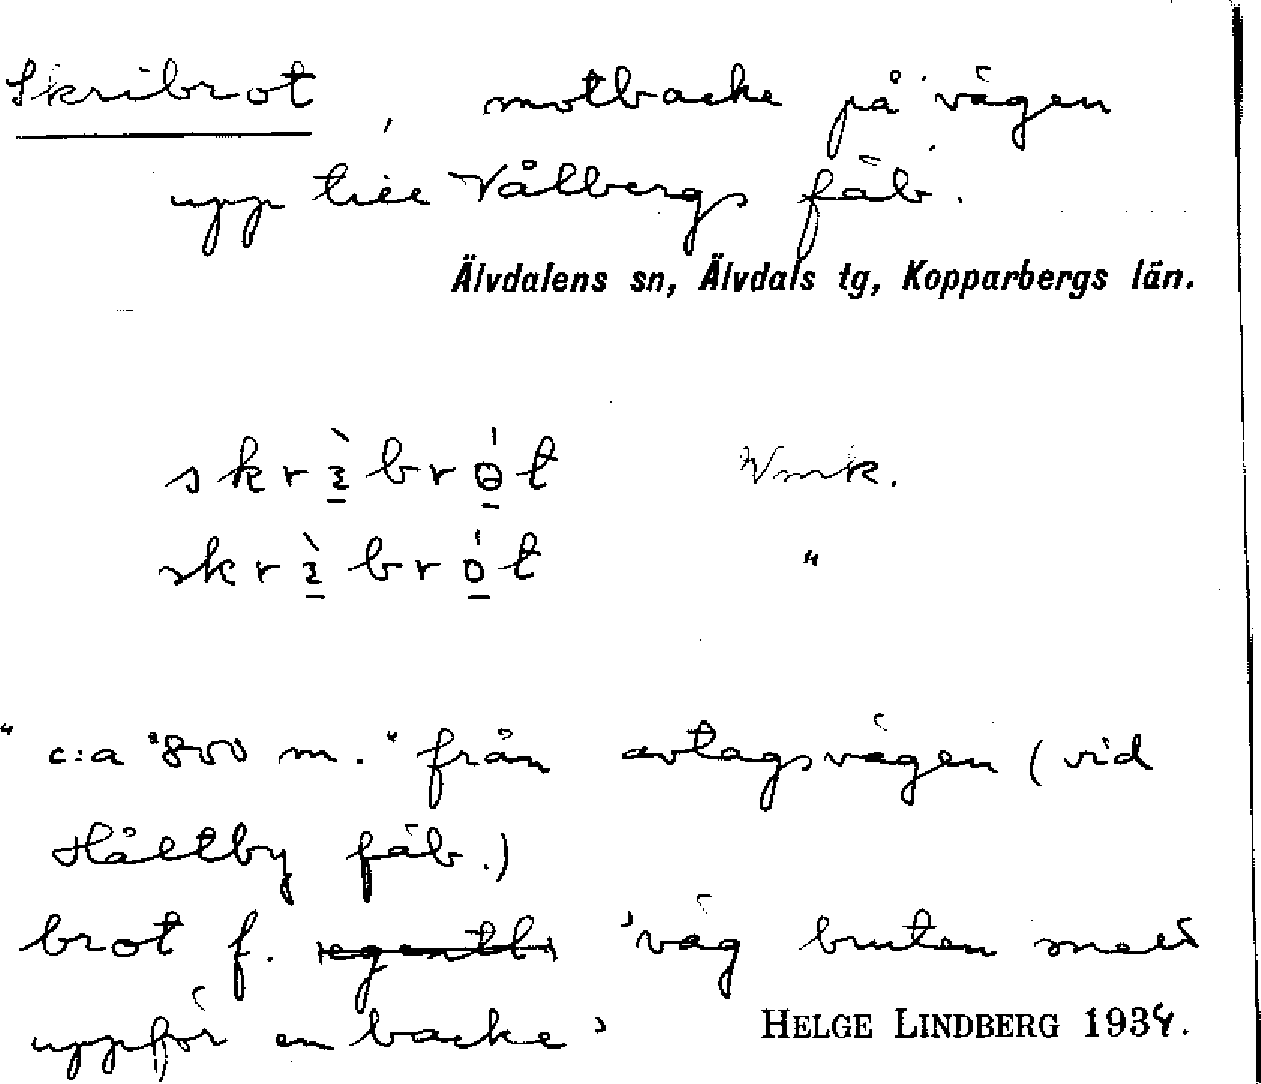 Skribrot, motbacke på vägen
upp till Vålbergs fäb.
Älvdalens sn, Älvdals tg, Kopparbergs län.
skrìbrót Vmk.
skrìbrót "
" c:a "800 m." från avtagsvägen (vid
Hålltby fäb.)
brot f. egentl. 'väg bruten
uppför en backe'
HELGE LINDBERG 1934.